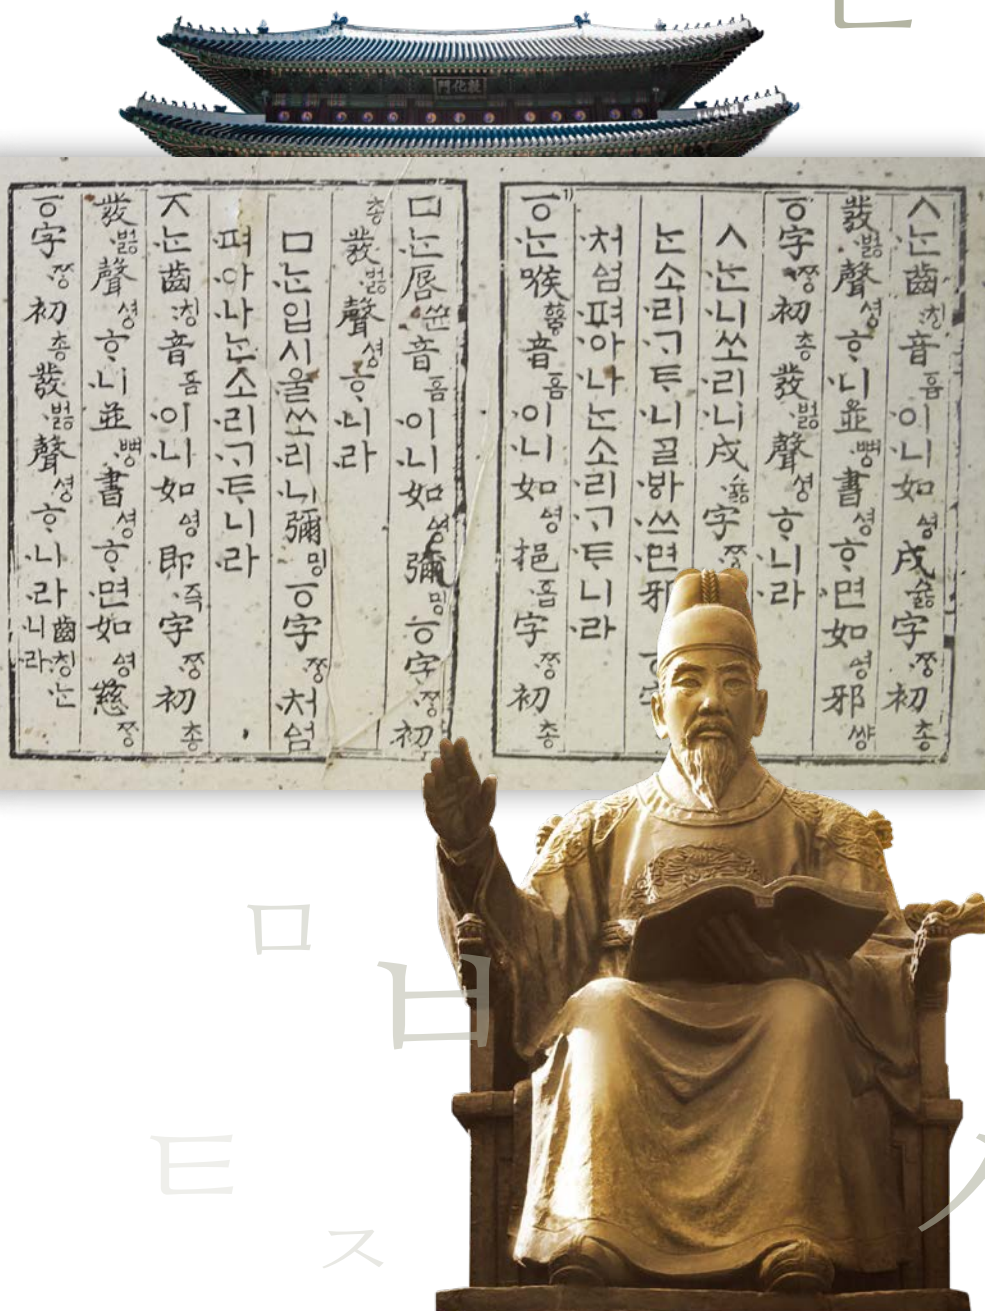 敦化門
ㅅ·ᄂᆞᆫ齒:칭音ᅙᅳᆷ·이·니如ᅀᅧᆼ戌·슗字·ᄍᆞᆼ初총
發·벓聲셩·ᄒᆞ·니並·뼝書셩·ᄒᆞ·면如ᅀᅧᆼ邪썅
ㆆ字·ᄍᆞᆼ初총發·벓聲셩·ᄒᆞ·니·라
ㅅ·ᄂᆞᆫ·니쏘·리·니戌·슗字·ᄍᆞᆼ
ᄂᆞᆫ소·리·ᄀᆞ·ᄐᆞ·니ᄀᆞᆯ·ᄫᅡ·쓰·면邪
·처ᅀᅥᆷ·펴·아·나·ᄂᆞᆫ소·리·ᄀᆞ·ᄐᆞ·니·라
ㆆ1)·ᄂᆞᆫ喉ᅘᅮᇢ音ᅙᅳᆷ·이·니如ᅀᅧᆼ挹ᅙᅳᆸ字·ᄍᆞᆼ初총
ㅁ·ᄂᆞᆫ唇쓘音ᅙᅳᆷ·이·니如ᅀᅧᆼ彌밍ㆆ字·ᄍᆞᆼ初
총發·벓聲셩·ᄒᆞ·니·라
ㅁ·ᄂᆞᆫ입시·울쏘·리·니彌밍ㆆ字·ᄍᆞᆼ·처ᅀᅥᆷ
·펴·아·나·ᄂᆞᆫ소·리·ᄀᆞ·ᄐᆞ·니·라
ㅈ·ᄂᆞᆫ齒:칭音ᅙᅳᆷ·이·니如ᅀᅧᆼ即·즉字·ᄍᆞᆼ初총
發·벓聲셩·ᄒᆞ·니並·뼝書셩·ᄒᆞ·면如ᅀᅧᆼ慈ᄍᆞᆼ
ㆆ字·ᄍᆞᆼ初총發·벓聲셩·ᄒᆞ·니·라齒:칭·ᄂᆞᆫ·니·라
ㅁ
ㅂ
ㅌ
ㅈ